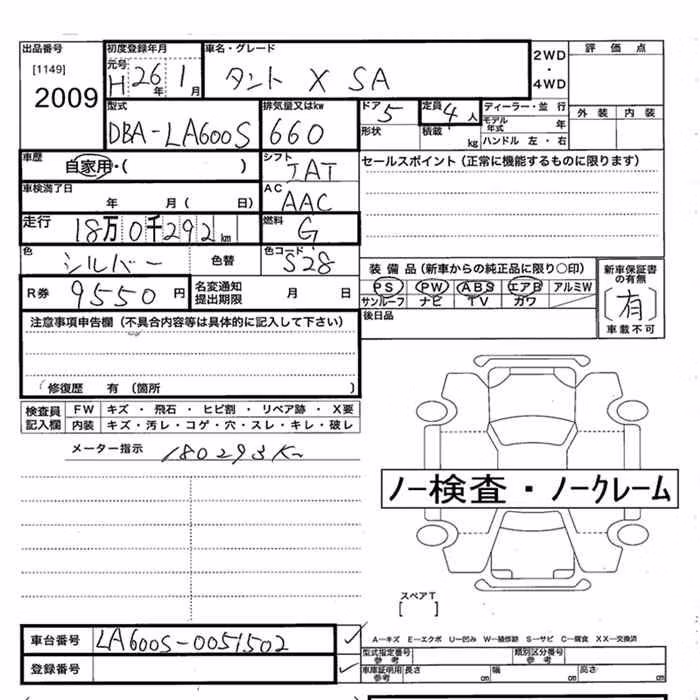 出品番号 初度登録年月 車名・グレード 2WD・4WD 評価点
[1149] 元号 H26年1月 タント X SA
2009
型式 排気量又はkw ドア 5 定員 4人 ディーラー・並行 外装 内装
DBA-LA600S 660 形状 積載 kg モデル年式 年
ハンドル 左・右
車歴 自家用・( ) シフト JAT セールスポイント(正常に機能するものに限ります)
車検満了日 年 月( 日) AC AAC
走行 18万0千292km 燃料 G
色 シルバー 色替 色コード S28
装備品(新車からの純正品に限り○印) 新車保証書の有無
R券 9550円 名変通知提出期限 月 日 PS PW ABS エアB アルミW (有)
サンルーフ ナビ TV カワ 車載不可
注意事項申告欄(不具合内容等は具体的に記入して下さい) 後日品
修復歴 有(箇所 )
検査員記入欄 FW キズ・飛石・ヒビ割・リペア跡・X要
内装 キズ・汚レ・コゲ・穴・スレ・キレ・破レ
メーター指示 180293K
ノー検査・ノークレーム
スペアT
[ ]
車台番号 LA600S-0051502 A−キズ E−エクボ U−凹み W−補修跡 S−サビ C−腐食 XX−交換済
型式指定番号 参考 類別区分番号 参考
登録番号 車庫証明用 参考 長さ cm 幅 cm 高さ cm